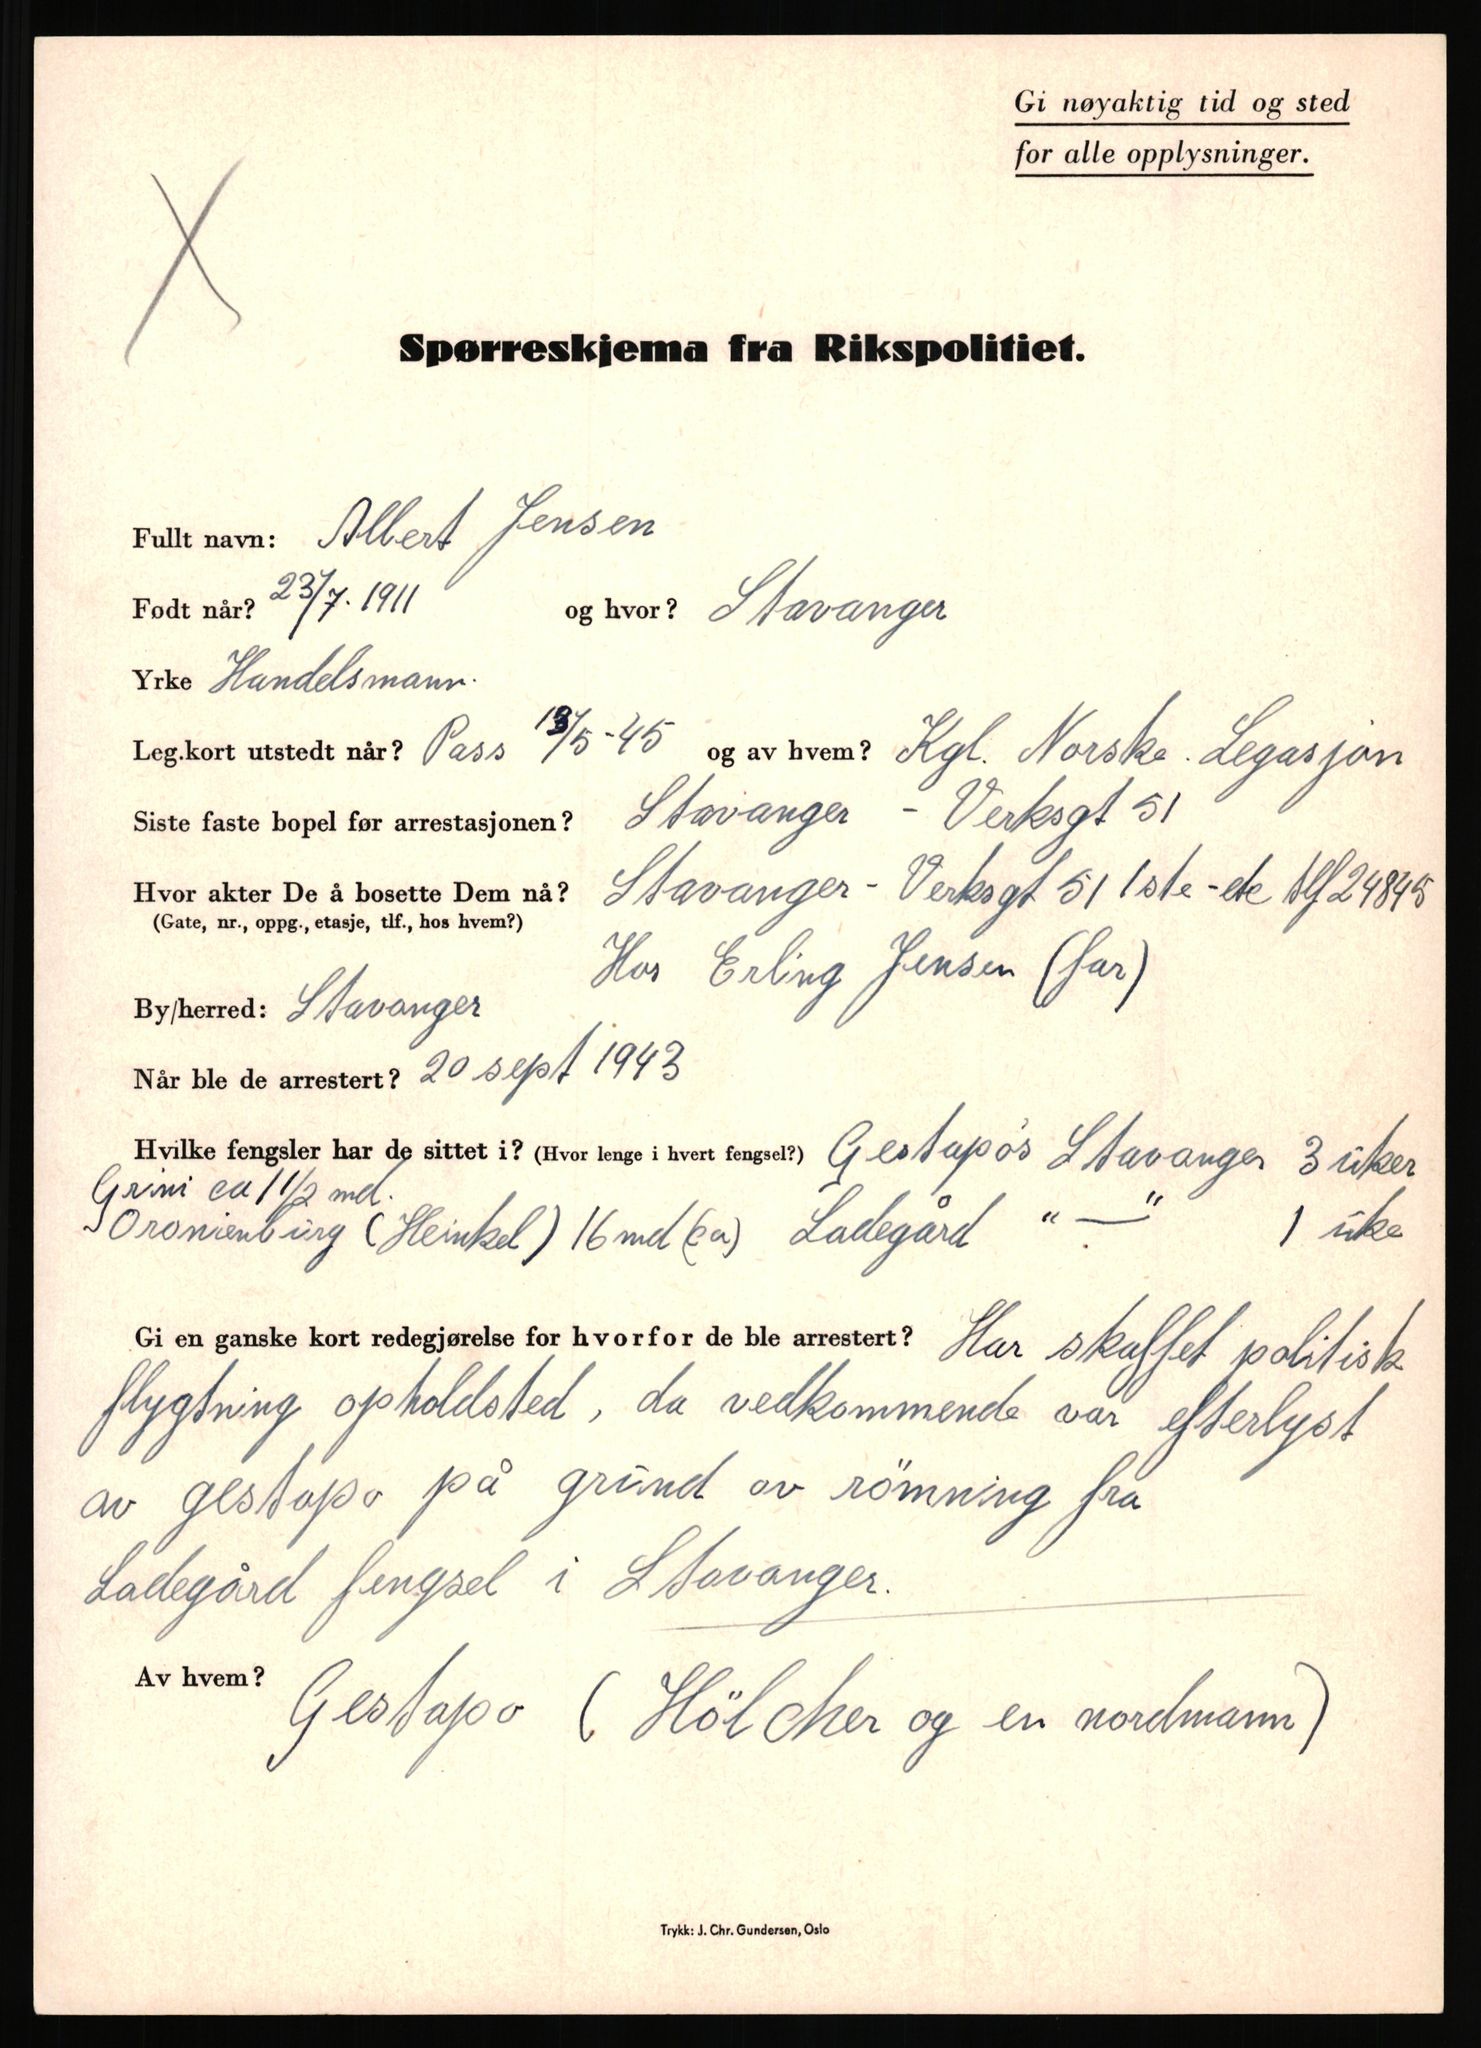 Gi nøyaktig tid og sted
for alle opplysninger.
X
Spørreskjema fra Rikspolitiet.
Fullt navn: Albert Jensen
Født når? 23/7. 1911 og hvor? Stavanger
Yrke Handelsmann.
Leg.kort utstedt når? Pass 13/5-45 og av hvem? Kgl. Norske. Legasjon
Siste faste bopel før arrestasjonen? Stavanger - Verksgt 51
Hvor akter De å bosette Dem nå? Stavanger - Verksgt 51 1ste-ete tlf 24845
(Gate, nr., oppg., etasje, tlf., hos hvem?) Hos Erling Jensen (far)
By/herred: Stavanger
Når ble de arrestert? 20 sept 1943
Hvilke fengsler har de sittet i? (Hvor lenge i hvert fengsel?) Gestapo's Stavanger 3 uker
Grini ca 1 1/2 md.
Oranienburg (Heinkel) 16 md (ca) Ladegård " — " 1 uke
Gi en ganske kort redegjørelse for hvorfor de ble arrestert? Har skaffet politisk
flygtning opholdsted, da vedkommende var efterlyst
av gestapo på grund av römning fra
Ladegård fengsel i Stavanger.
Av hvem? Gestapo (Hölcher og en nordmann)
Trykk: J. Chr. Gundersen, Oslo